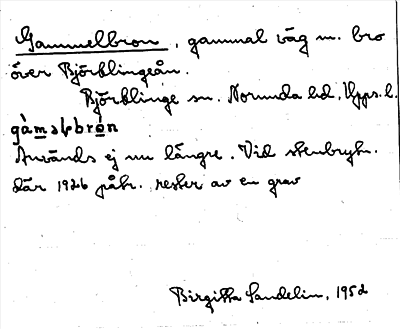 Gammelbron, gammal väg m. bro
över Björklingeån.
Björklinge sn. Norunda hd, Upps. l.
gàmalbrón
Används ej nu längre. Vid stenbrytn.
där 1926 påtr. rester av en grav
Birgitta Sandelin, 1952